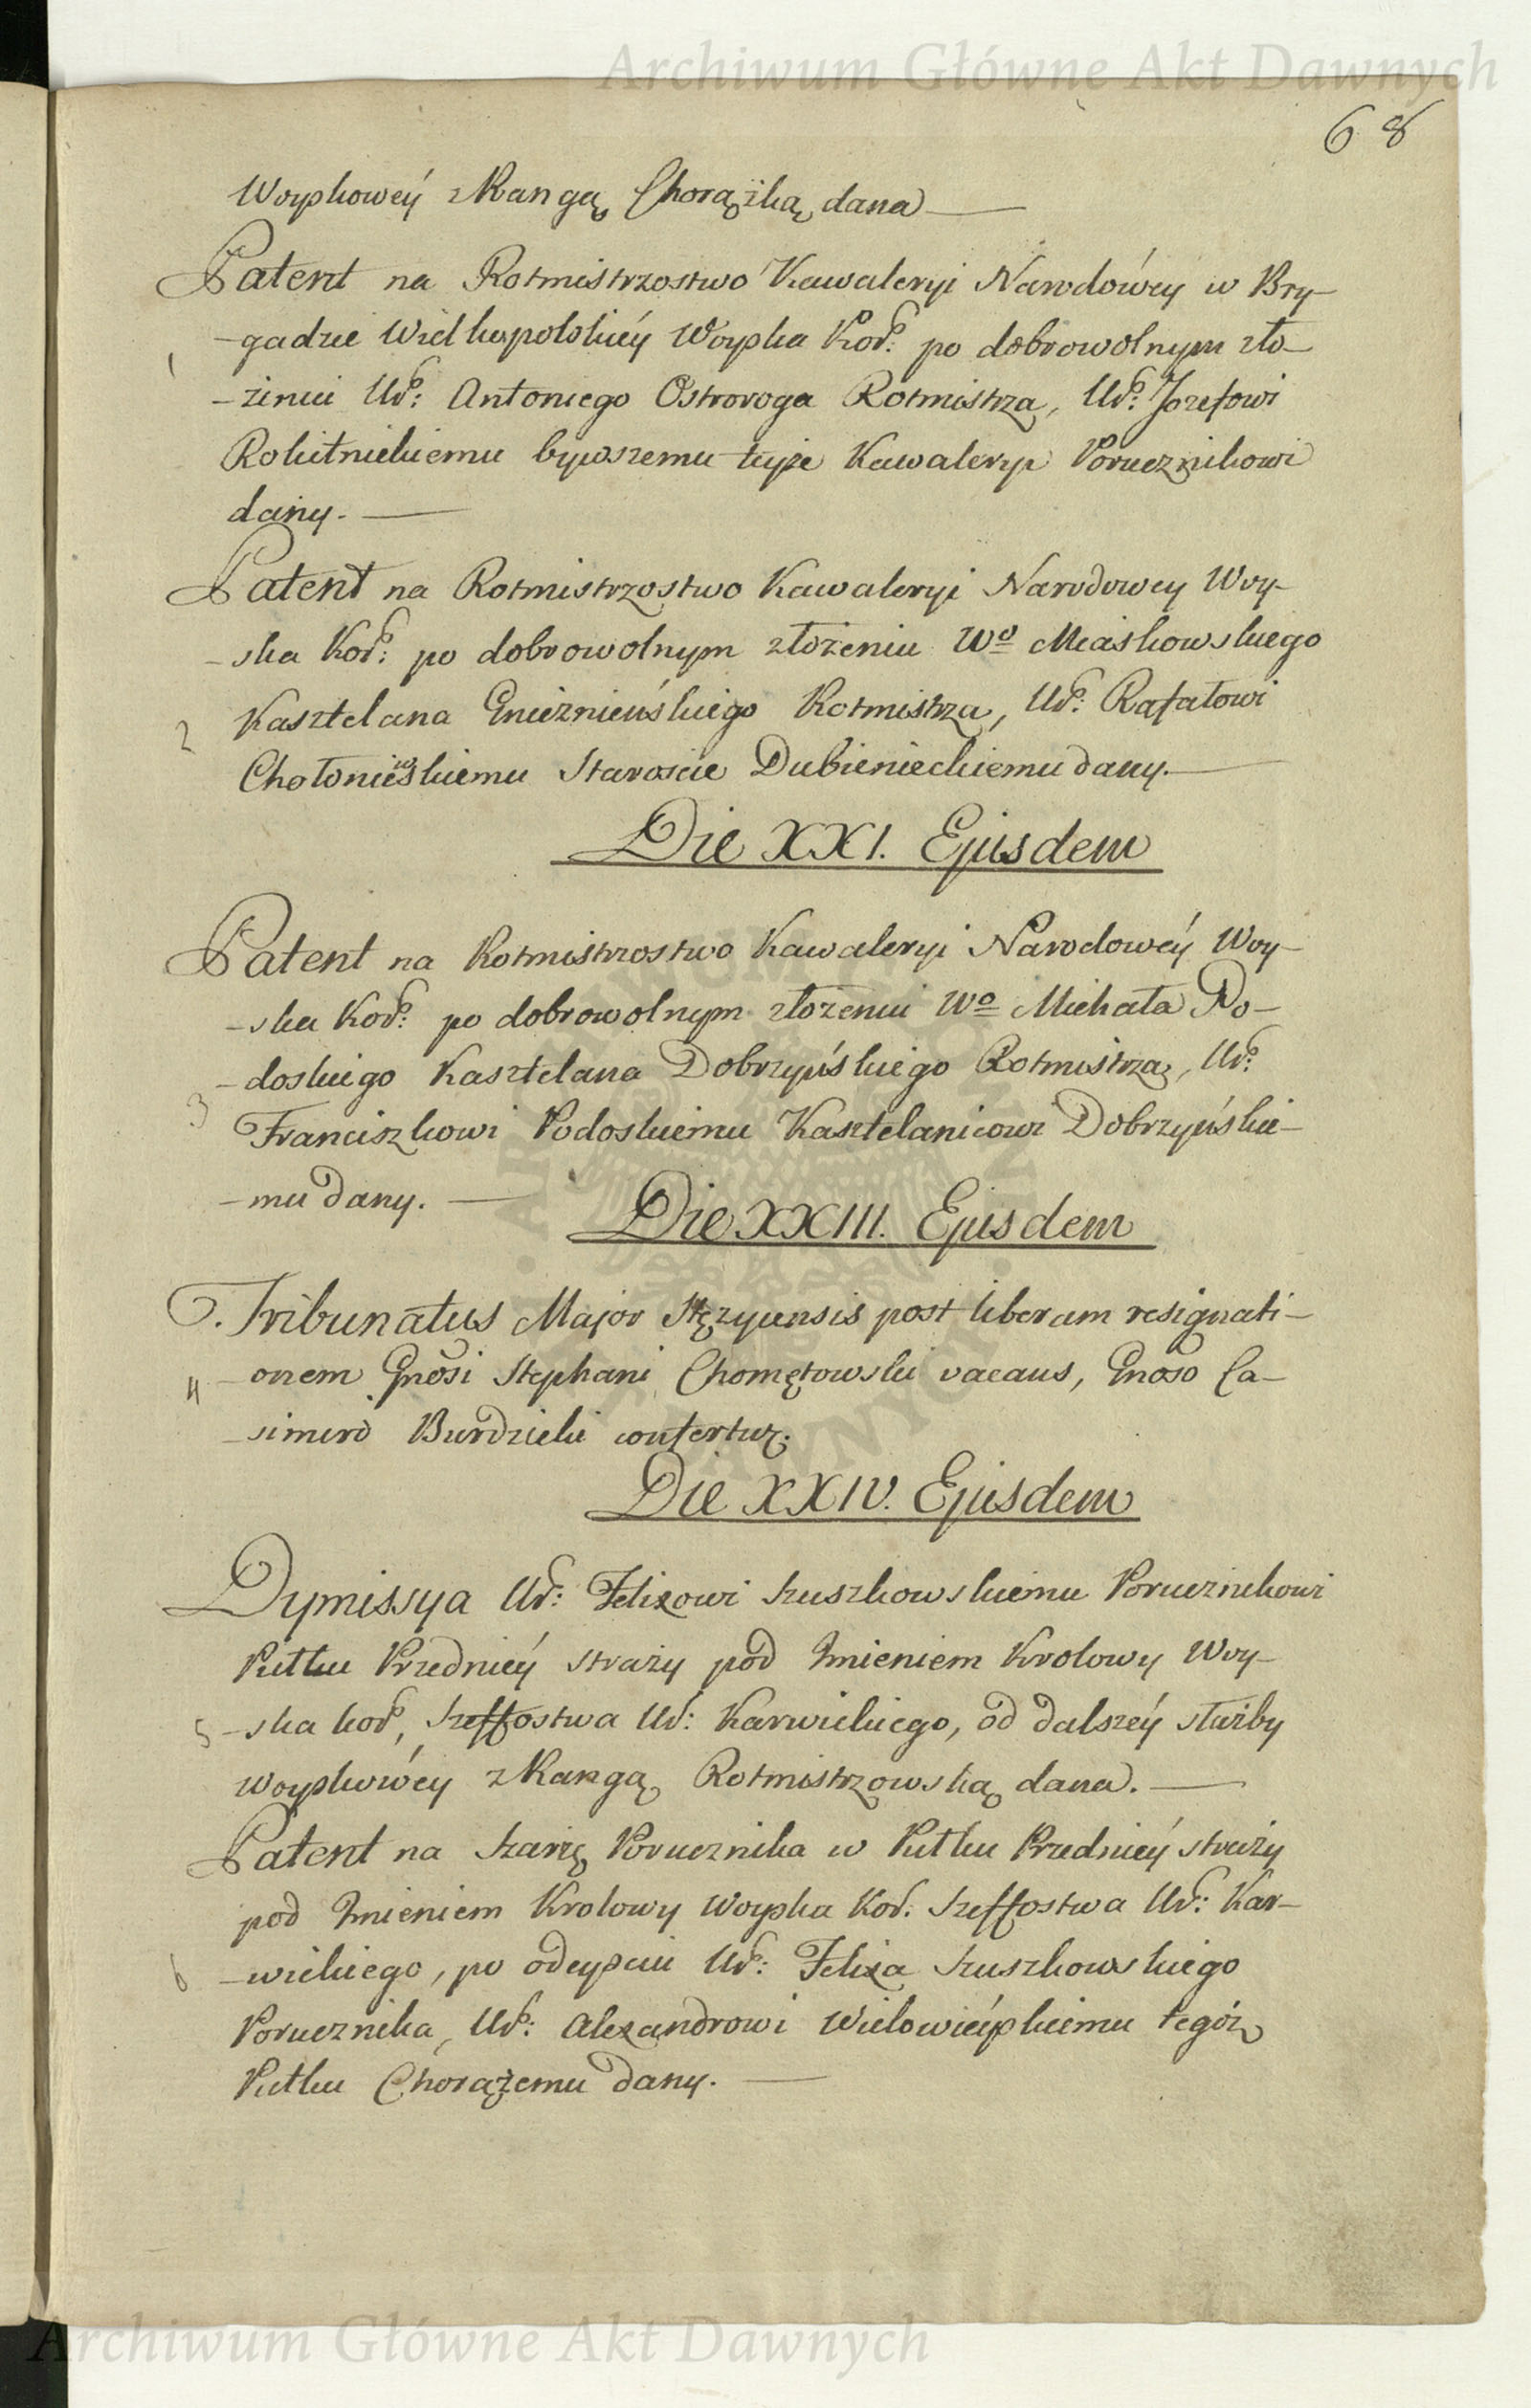 Archiwum Główne Akt Dawnych
68
Woyskowéy z Rangą Chorążką dana —
Patent na Rotmistrzostwo Kawaleryi Narodówey w Bry-
-gadzie Wielkopolskiéy Woyska Kor: po dobrowolnym zło-
1
-żeniu Ur: Antoniego Ostroroga Rotmistrza, Ur: Jozefowi
Rokitnickiemu bywszemu teyże Kawaleryi Porucznikowi
dany. —
Patent na Rotmistrzostwo Kawaleryi Narodowey Woy-
-ska Kor: po dobrowolnym złożeniu Wo Miaskowskiego
2
Kasztelana Gnieźnieńskiego Rotmistrza, Ur: Rafałowi
Chołoniewskiemu Staroscie Dubienieckiemu dany. —
Die XXI. Ejusdem
Patent na Rotmistrzostwo Kawaleryi Narodowéy Woy-
-ska Kor: po dobrowolnym złożeniu Wo Michała Po-
-doskiego Kasztelana Dobrzyńskiego Rotmistrza, Ur:
3
Franciszkowi Podoskiemu Kasztelanicowi Dobrzyńskie-
-mu dany. —
Die XXIII. Ejusdem
Tribunatus Major Stęzycensis post liberam resignati-
4
-onem Gnosi Stephani Chomętowski vacans, Gnoso Ca-
-simiro Burdzicki confertur.
Die XXIV. Ejusdem
Dymissya Ur: Felixowi Szuszkowskiemu Porucznikowi
Pułku Przedniéy straży pod Imieniem Krolowy Woy-
5
-ska kor, Szeffostwa Ur: Karwickiego, od dalszéy służby
woyskowéy z Rangą Rotmistrzowską dana. —
Patent na Szarżę Porucznika w Pułku Przedniéy straży
pod Imieniem Krolowy Woyska Kor. Szeffostwa Ur: Kar-
6
-wickiego, po odeyściu Ur: Felixa Szuszkowskiego
Porucznika, Ur: Alexandrowi Wielowieyskiemu tegóż
Pułku Chorążemu dany. —
Archiwum Główne Akt Dawnych